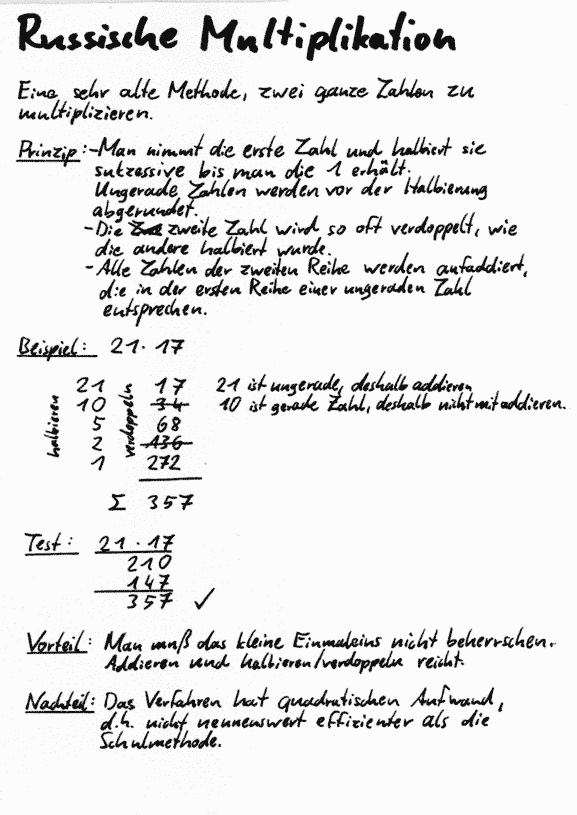 Russische Multiplikation
Eine sehr alte Methode, zwei ganze Zahlen zu
multiplizieren.
Prinzip: - Man nimmt die erste Zahl und halbiert sie
sukzessive bis man die 1 erhält.
Ungerade Zahlen werden vor der Halbierung
abgerundet.
- Die zweite Zahl wird so oft verdoppelt, wie
die andere halbiert wurde.
- Alle Zahlen der zweiten Reihe werden aufaddiert,
die in der ersten Reihe einer ungeraden Zahl
entsprechen.
Beispiel: 21 · 17
halbieren
verdoppeln
21 17 21 ist ungerade, deshalb addieren
10 34 10 ist gerade Zahl, deshalb nicht mit addieren.
5 68
2 136
1 272
Σ 357
Test: 21 · 17
210
147
357 ✓
Vorteil: Man muß das kleine Einmaleins nicht beherrschen.
Addieren und halbieren/verdoppeln reicht.
Nachteil: Das Verfahren hat quadratischen Aufwand,
d.h. nicht nennenswert effizienter als die
Schulmethode.